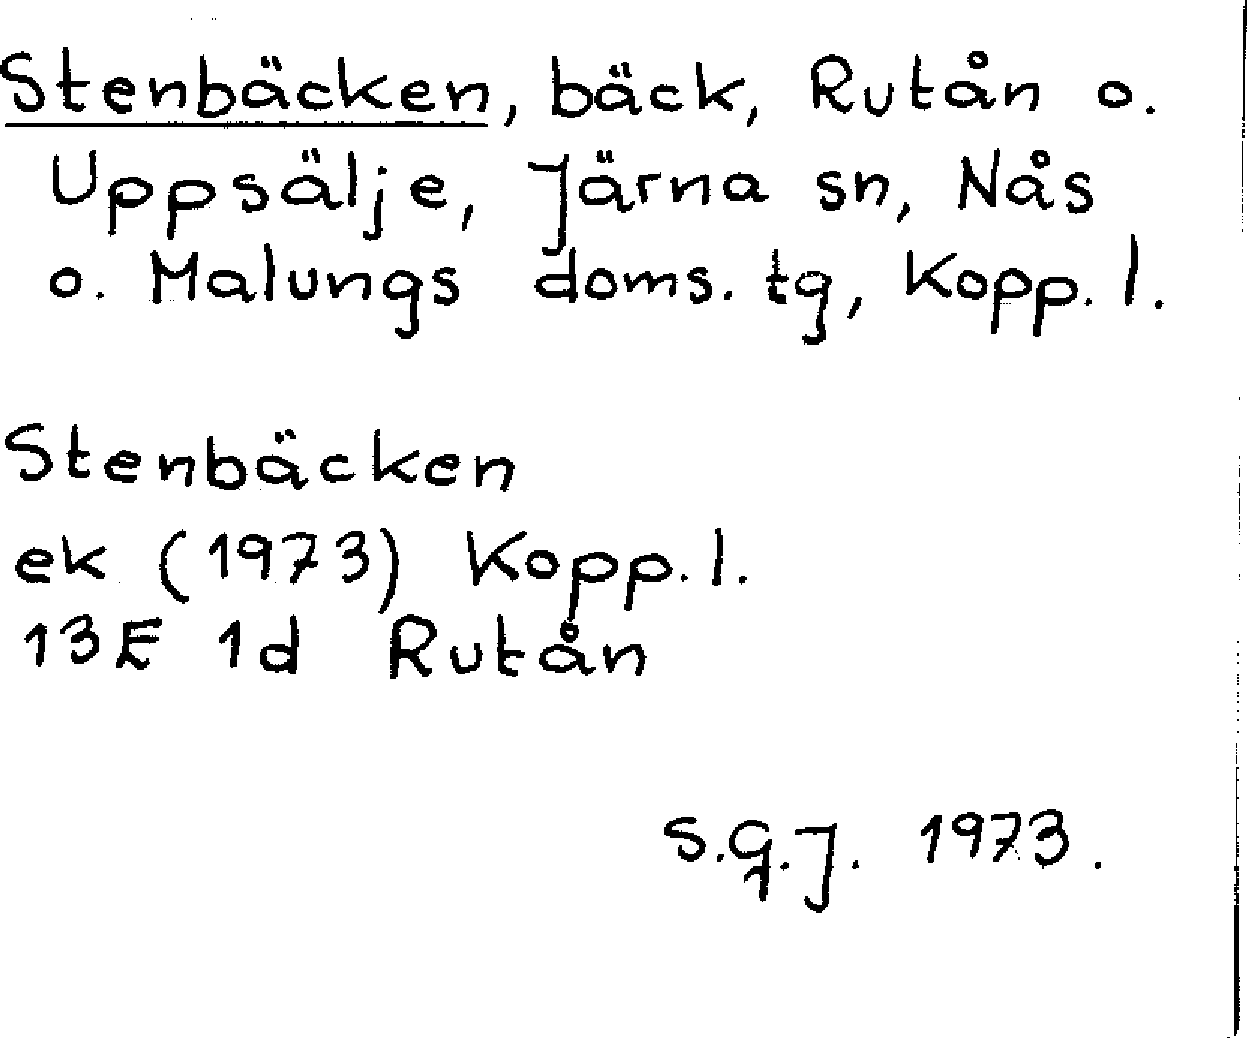 Stenbäcken, bäck, Rutån o.
Uppsälje, Järna sn, Nås
o. Malungs doms. tg, Kopp. l.
Stenbäcken
ek (1973) Kopp. l.
13E 1d Rutån
S.G.J. 1973.